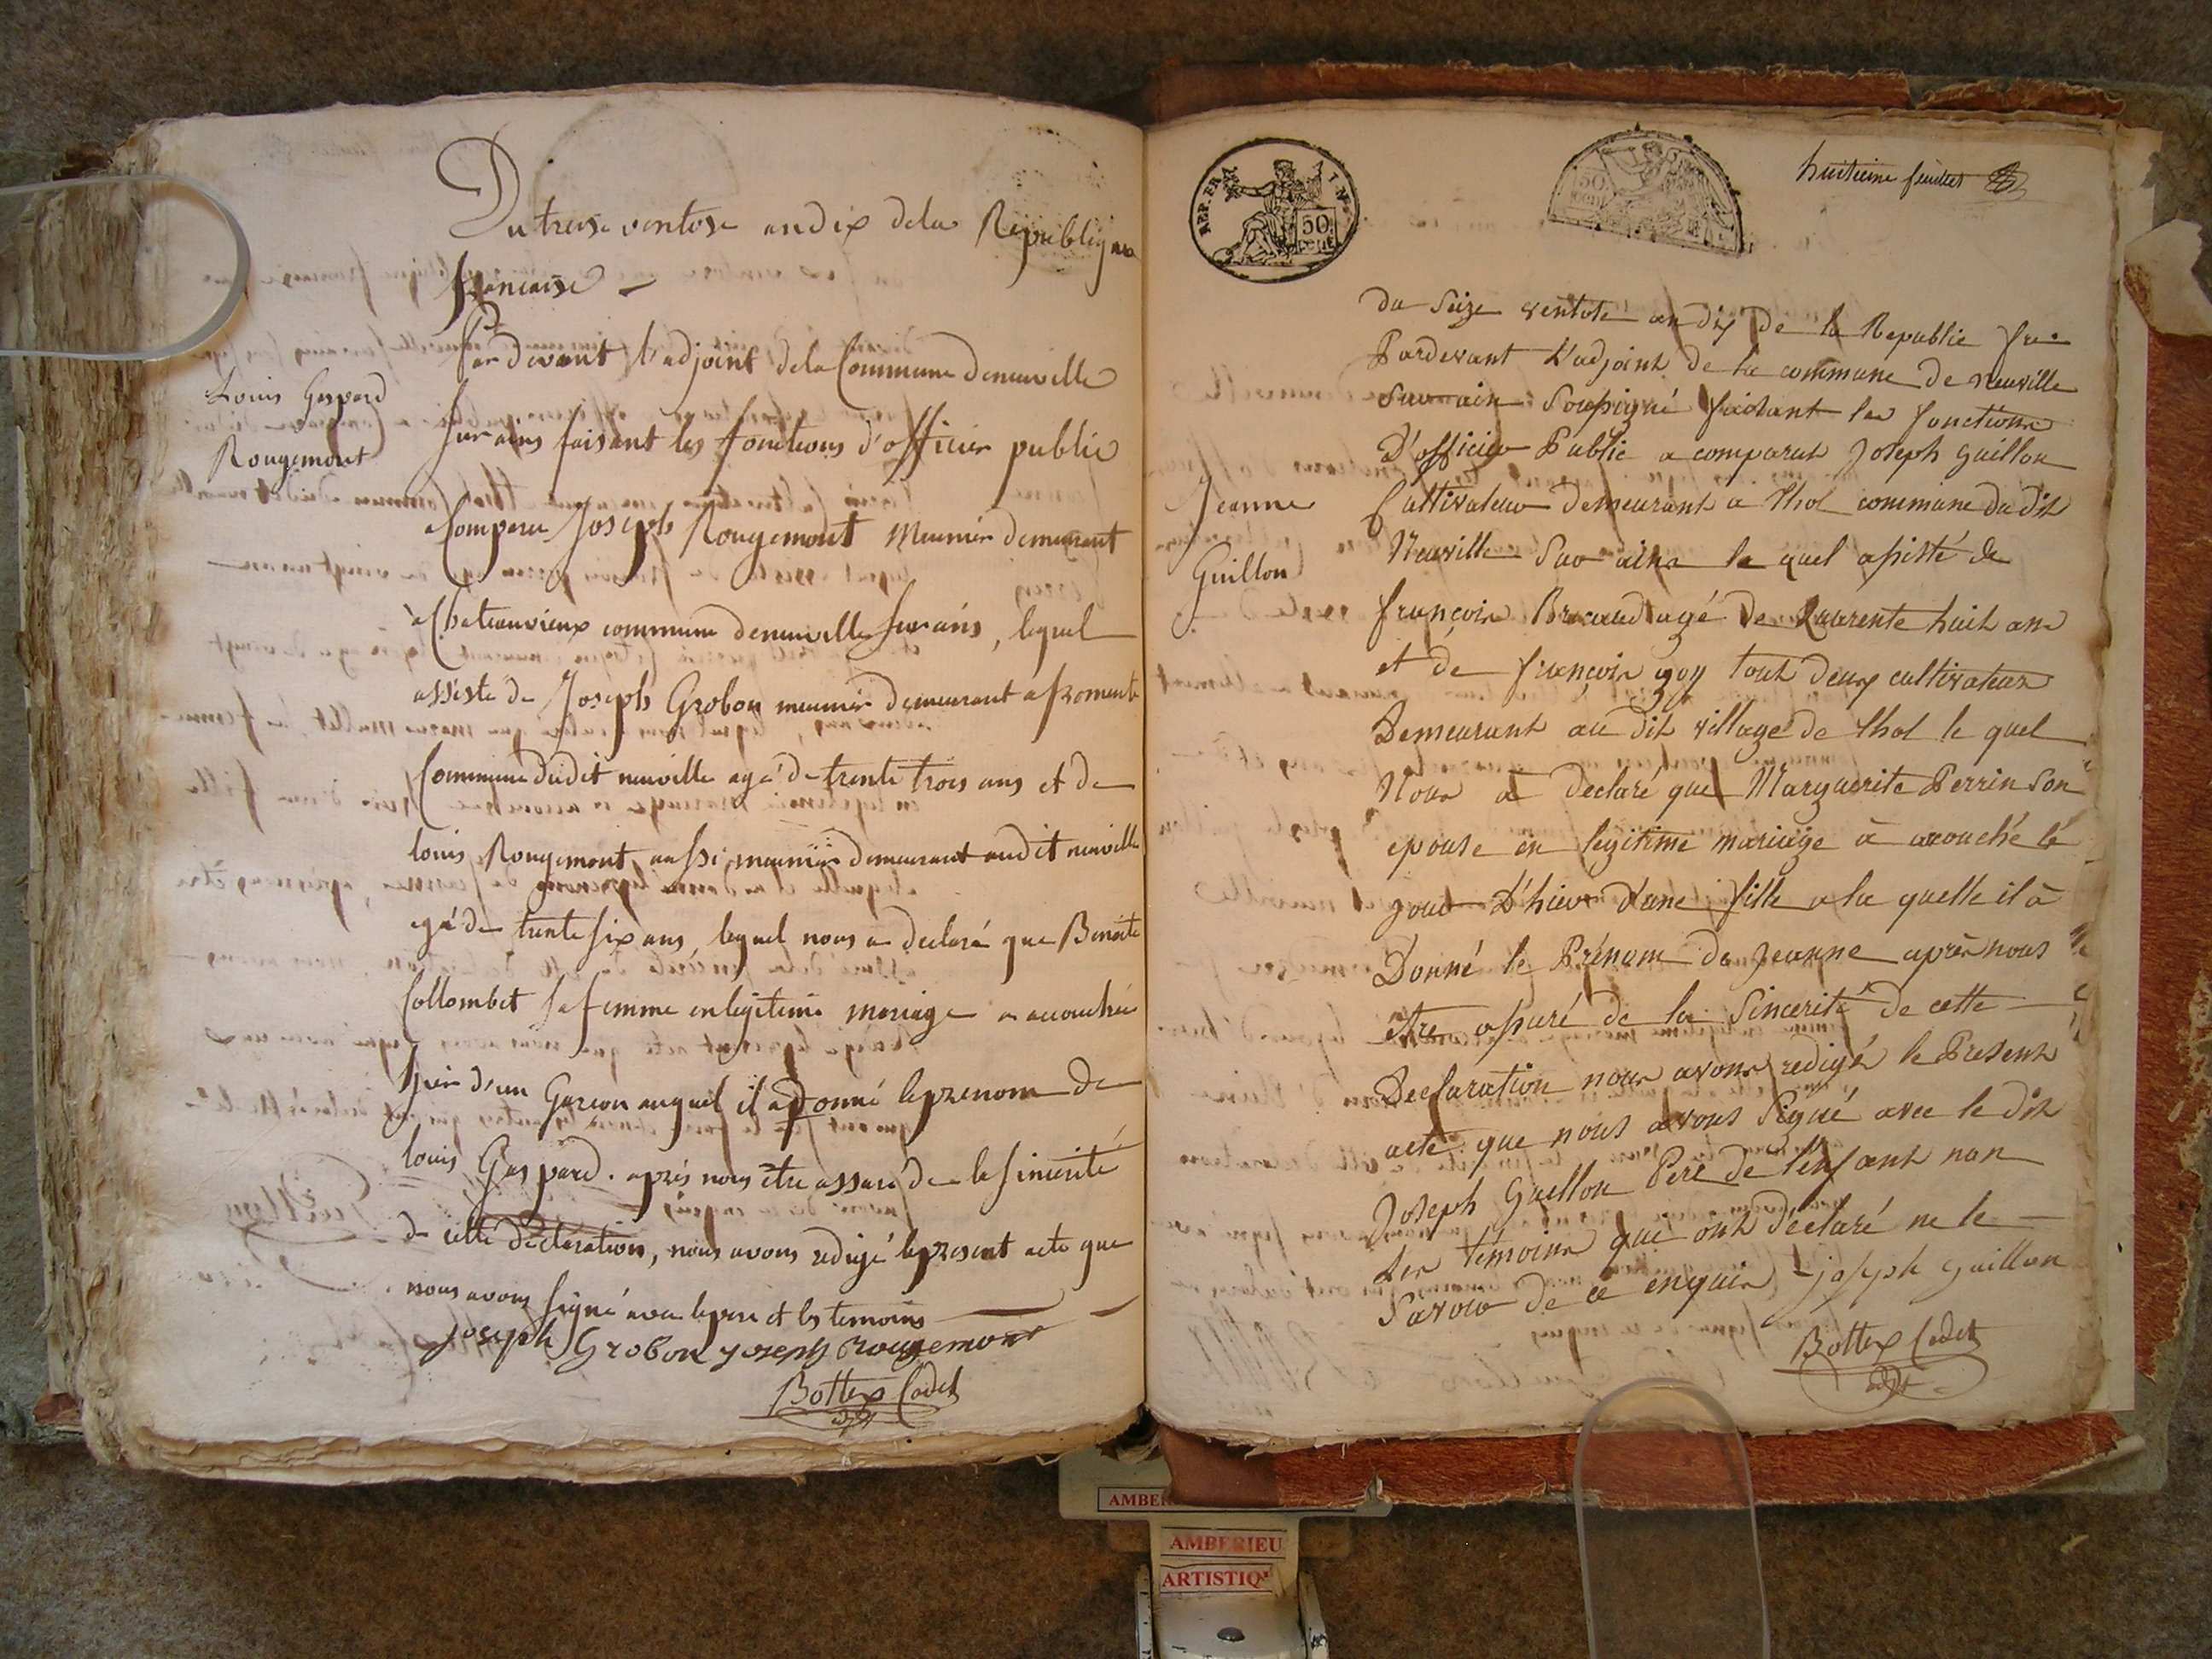 Du treize ventose an dix dela Republique
francaise
Par devant l'adjoint dela Commune deneuville
Louis Gaspard
Rougemont
sur ains faisant les fonctions d'officier public
a Comparu Joseph Rougemont meunier demeurant
à Chateauvieux commune deneuville sur ains, lequel
assisté de Joseph Grobon meunier demeurant a fromente
Commune dudit neuville agé de trente trois ans et de
louis Rougemont aussi meunier demeurant audit neuville
agé de trente six ans, lequel nous a declaré que Benoite
Collombet sa femme en legitime mariage a accouchée
hier d'un Garcon auquel il a donné le prenom de
louis Gaspard. après nous être assuré de la sincerité
de cette declaration, nous avons redigé le present acte que
nous avons signé avec le pere et les temoins
joseph Grobon joseph Rougemont
Bottex Cadet
adjt
REP. FRA.
50
CENT
50
CENT
huitieme feuillet
du Seize ventose an dix de la Republic fre
Pardevant L'adjoint de la commune de neuville
Sur ain Soussigné faisant les fonctions
D'officier Public a comparut Joseph guillon
Jeanne
Guillon
Cultivateur demeurant a Thol commune du dit
Neuville Sur ains le quel assisté de
françois Brocaud agé de Quarente huit ans
et de françois goy tout deux cultivateur
Demeurant au dit village de thol le quel
Nous a declaré que Marguerite Perrin Son
epouse en legitime mariage à acouché le
jour D'hier d'une fille a la quelle il à
Donné le Prénom de Jeanne après nous
etre assuré de la Sincerité de cette
Declaration nous avons redigé le Present
acte que nous avons Signé avec le dit
Joseph Guillon Pere de l'enfant non
les témoins qui ont déclaré ne le
Savoir de ce enquis joseph guillon
Bottex Cadet
adjt
AMBERIEU
ARTISTIQ